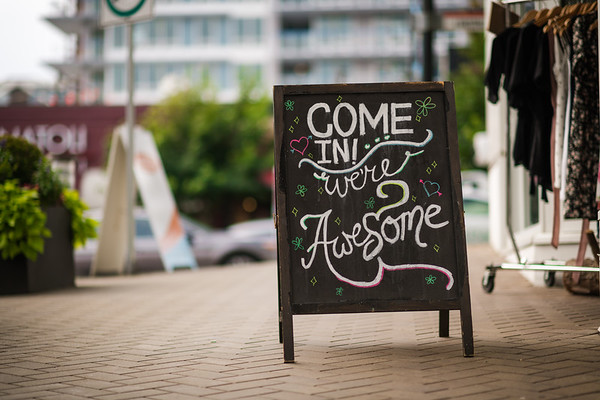 COME
IN!
we're
AweSome